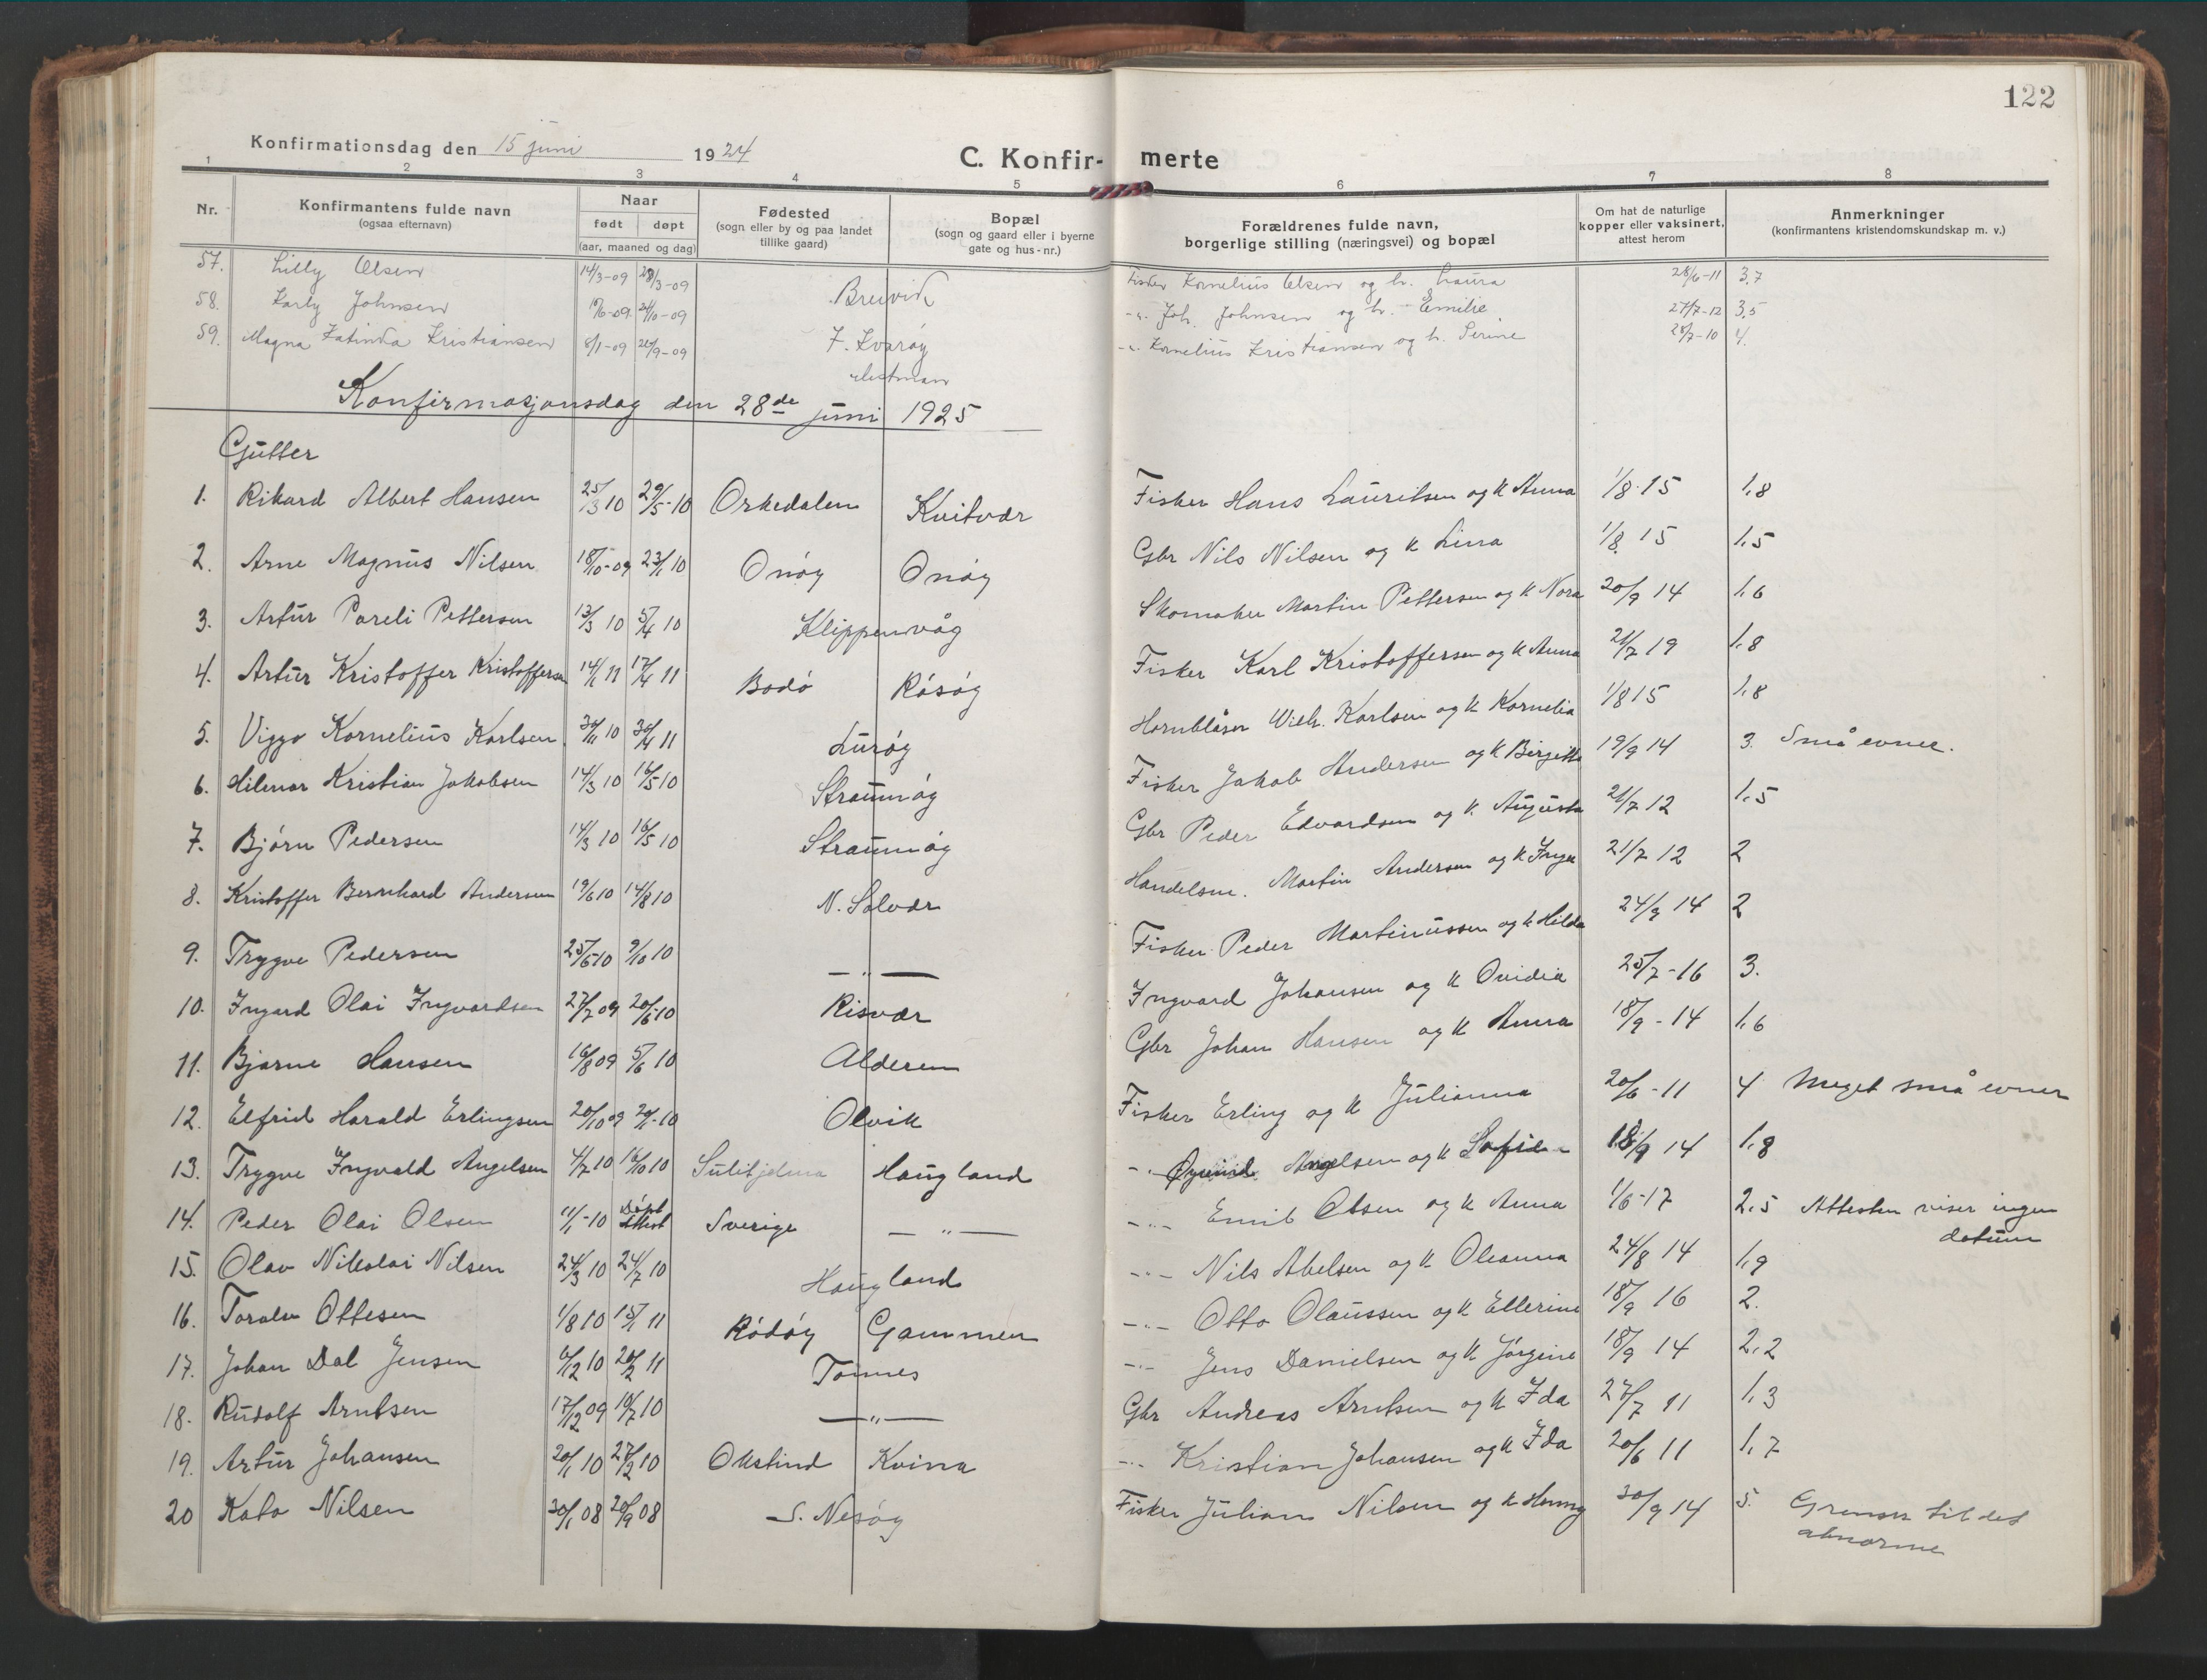 122
Konfirmationsdag den 15 juni 1924
C. Konfir- merte
1 2 3 4 5 6 7 8
Nr. Konfirmantens fulde navn (ogsaa efternavn) Naar født døpt (aar, maaned og dag) Fødested (sogn eller by og paa landet tillike gaard) Bopæl (sogn og gaard eller i byerne gate og hus-nr.) Forældrenes fulde navn, borgerlige stilling (næringsvei) og bopæl Om hat de naturlige kopper eller vaksinert, attest herom Anmerkninger (konfirmantens kristendomskundskap m. v.)
57. Lilly Olsen 14/3-09 28/3-09 Breivik Fisker Kornelius Olsen og h. Laura 28/6-11 3,7
58. Karly Johnsen 17/6-09 24/10-09 -"- Joh. Johnsen og h. Emilie 27/7-12 3,5
59. Magna Katinda Kristiansen 8/1-09 26/9-09 F. Kvarøy -"- Kornelius Kristiansen og h. Serine 28/7-10 4.
Hestman
Konfirmasjonsdag den 28de juni 1925
Gutter
1. Rikard Albert Hansen 25/3 10 29/5-10 Orkedalen Kvitvær Fisker Hans Lauritsen og k Anna 1/8-15 1,8
2. Arne Magnus Nilsen 18/10-09 23/1 10 Onøy Onøy Gbr Nils Nilsen og k Lina 1/8 15 1,5
3. Artur Pareli Pettersen 13/3 10 5/4 10 Klippenvåg Skomaker Martin Pettersen og k Nora 20/9 14 1,6
4. Artur Kristoffer Kristoffersen 14/1 11 17/4 11 Bodø Røsøy Fisker Karl Kristoffersen og k Anna 21/7 19 1,8
5. Viggo Kornelius Karlsen 30/11 10 30/4 11 Lurøy Hornblåser Wilh. Karlsen og k Kornelia 1/8 15 1,8
6. Hilmar Kristian Jakobsen 14/3 10 16/5 10 Straumøy Fisker Jakob Andersen og k Birgitte 19/9 14 3. Små evner.
7. Bjørn Pedersen 14/3 10 16/5 10 Straumøy Gbr Peder Edvardsen og k. Augusta 21/7 12 1,5
8. Kristoffer Bernhard Andersen 19/6 10 14/8 10 N. Solvær Handelsm. Martin Andersen og k Inga 21/7 12 2
9. Trygve Pedersen 25/6-10 9/10 10 —"— Fisker Peder Martinussen og k Hilda 24/9 14 2
10. Ingard Olai Ingvardsen 27/7 09 20/6-10 Risvær Ingvard Johansen og k Ovidia 25/7-16 3.
11. Bjarne Hansen 16/8 09 5/6 10 Alderen Gbr Johan Hansen og k Anna 18/9-14 1,6
12. Elfrid Harald Erlingsen 20/10 09 20/1-10 Olvik Fisker Erling og k Julianna 20/6-11 4 Meget små evner
13. Trygve Ingvald Angelsen 4/7 10 16/10 10 Sulitjelma Haugland -"- Øyvind Angelsen og k Sofie 18/9 14 1,8
14. Peder Olai Olsen 11/1-10 Døpt Attest Sverige —"— -"- Emil Olsen og k Anna 1/6-17 2,5 Attesten viser ingen datum
15. Olav Nikolai Nilsen 24/3 10 24/7 10 Haugland -"- Nils Abelsen og k Oleanna 24/8 14 1,9
16. Toralv Ottesen 1/8 10 15/1 11 Rødøy Gammen -"- Otto Olaussen og k Ellerine 18/9 16 2.
17. Johan Dal Jensen 6/12 10 26/2 11 Tonnes -"- Jens Danielsen og k Jørgine 18/9 14 2,2
18. Rudolf Arntsen 17/12 09 10/7 10 —"— Gbr Andreas Arntsen og k Ida 27/7 11 1,3
19. Artur Johansen 20/1 10 27/2 10 Okstind Kvina -"- Kristian Johansen og k Ida 20/6 11 1,7
20 Kato Nilsen 30/1 08 20/9 08 S. Nesøy Fisker Julian Nilsen og k Henny 30/9 14 5. Grenser til det abnorme